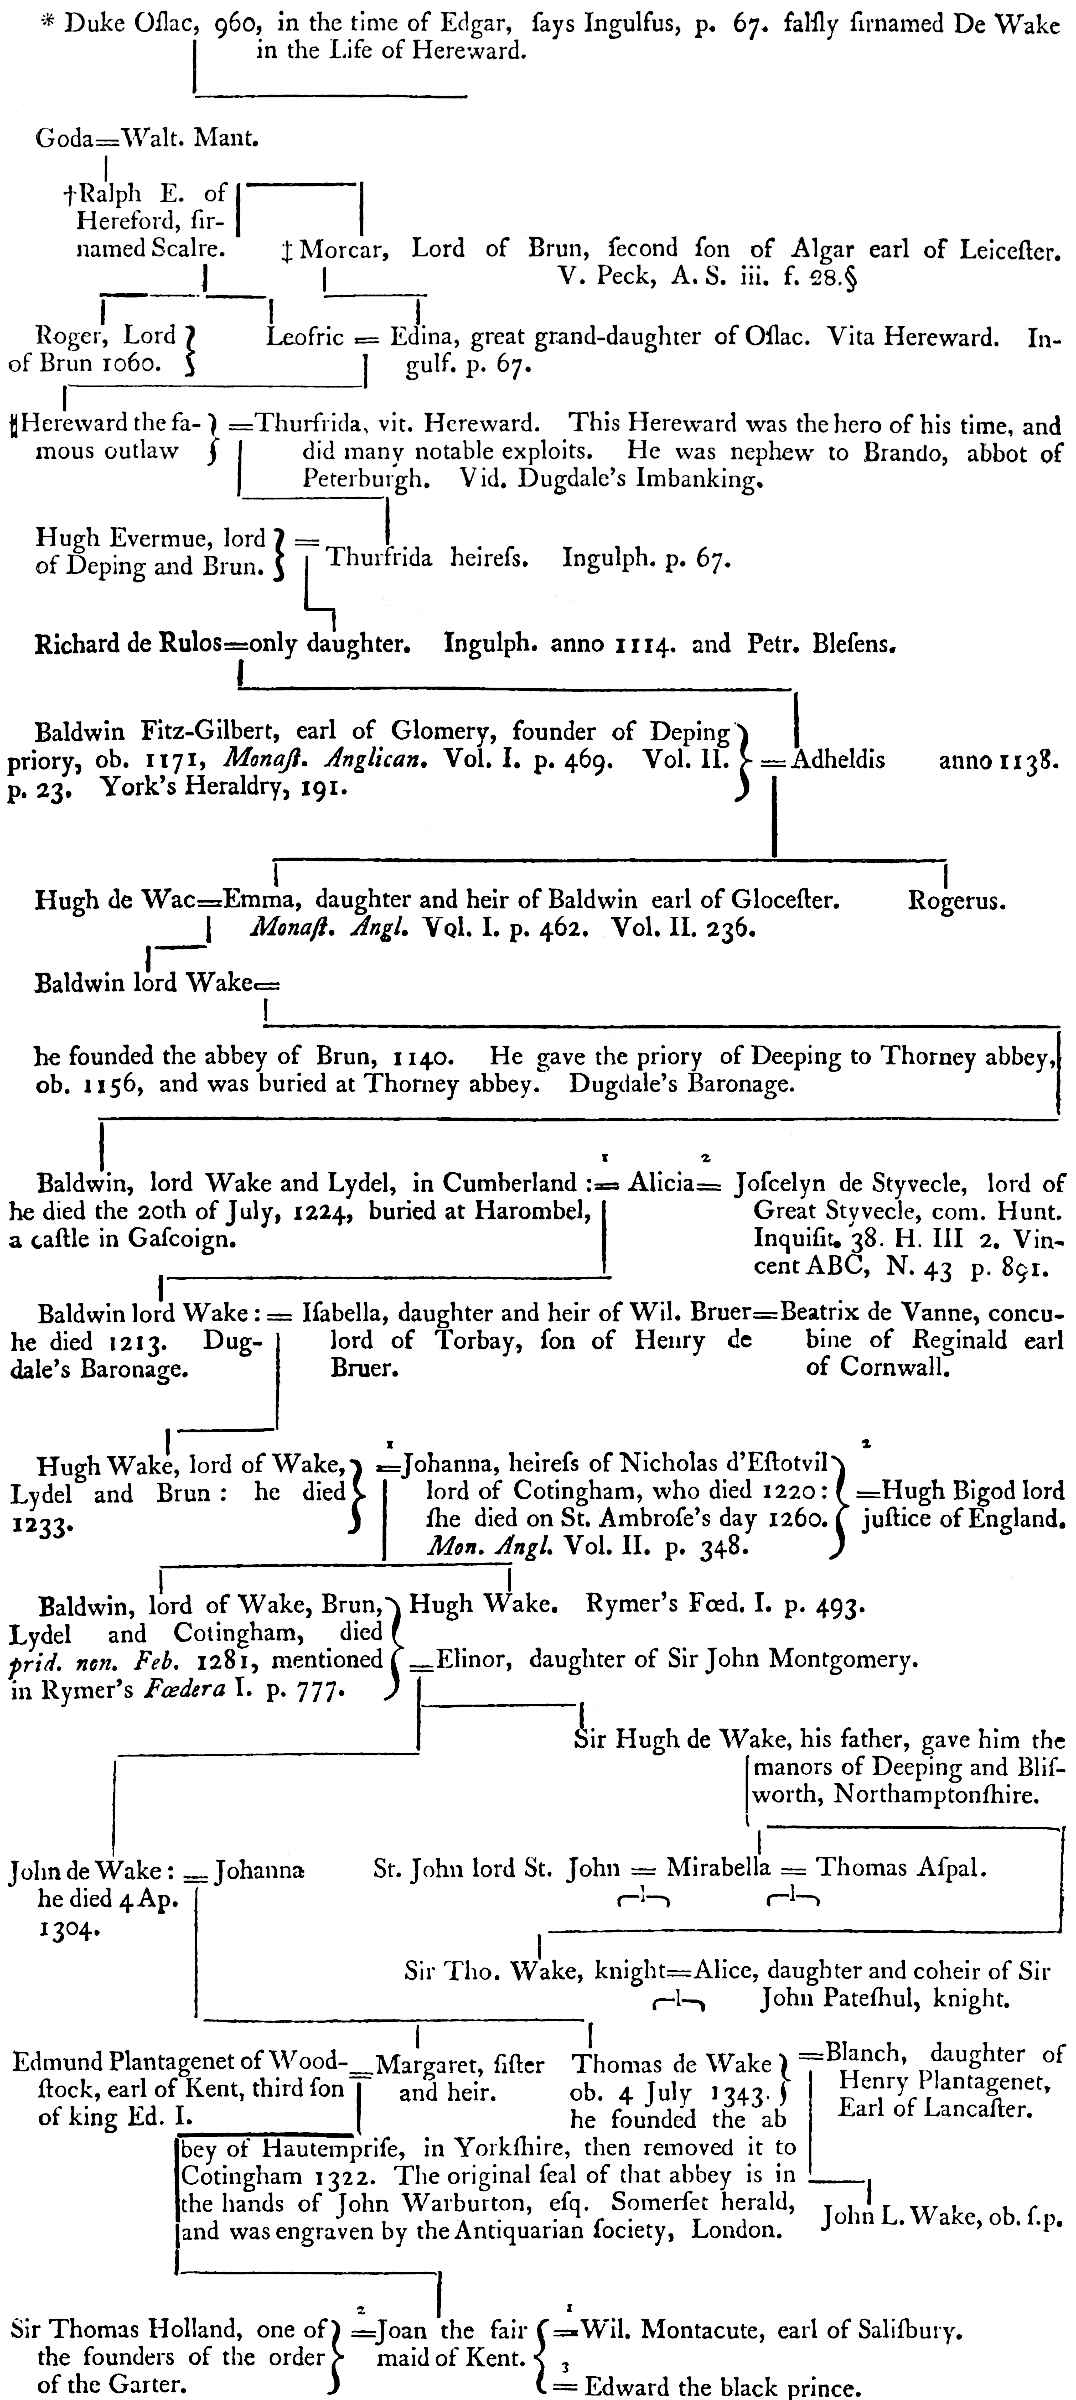 * Duke Oſlac, 960, in the time of Edgar, ſays Ingulfus, p. 67. falſly ſirnamed De Wake
in the Life of Hereward.
Goda=Walt. Mant.
†Ralph E. of
Hereford, ſir-
named Scalre.
‡ Morcar, Lord of Brun, ſecond ſon of Algar earl of Leiceſter.
V. Peck, A. S. iii. f. 28.§
Roger, Lord
of Brun 1060.
Leofric = Edina, great grand-daughter of Oſlac. Vita Hereward. In-
gulf. p. 67.
‖Hereward the fa-
mous outlaw
=Thurfrida, vit. Hereward. This Hereward was the hero of his time, and
did many notable exploits. He was nephew to Brando, abbot of
Peterburgh. Vid. Dugdale's Imbanking.
Hugh Evermue, lord
of Deping and Brun.
= Thurfrida heireſs. Ingulph. p. 67.
Richard de Rulos=only daughter. Ingulph. anno 1114. and Petr. Bleſens.
Baldwin Fitz-Gilbert, earl of Glomery, founder of Deping
priory, ob. 1171, Monaſt. Anglican. Vol. I. p. 469. Vol. II.
p. 23. York's Heraldry, 191.
=Adheldis anno 1138.
Hugh de Wac=Emma, daughter and heir of Baldwin earl of Gloceſter. Rogerus.
Monaſt. Angl. Vol. I. p. 462. Vol. II. 236.
Baldwin lord Wake=
he founded the abbey of Brun, 1140. He gave the priory of Deeping to Thorney abbey,
ob. 1156, and was buried at Thorney abbey. Dugdale's Baronage.
Baldwin, lord Wake and Lydel, in Cumberland :
he died the 20th of July, 1224, buried at Harombel,
a caſtle in Gaſcoign.
1 2
= Alicia= Joſcelyn de Styvecle, lord of
Great Styvecle, com. Hunt.
Inquiſit. 38. H. III 2. Vin-
cent ABC, N. 43 p. 891.
Baldwin lord Wake :
he died 1213. Dug-
dale's Baronage.
= Iſabella, daughter and heir of Wil. Bruer
lord of Torbay, ſon of Henry de
Bruer.
=Beatrix de Vanne, concu-
bine of Reginald earl
of Cornwall.
Hugh Wake, lord of Wake,
Lydel and Brun : he died
1233.
1
=Johanna, heireſs of Nicholas d'Eſtotvil
lord of Cotingham, who died 1220 :
ſhe died on St. Ambroſe's day 1260.
Mon. Angl. Vol. II. p. 348.
2
=Hugh Bigod lord
juſtice of England.
Baldwin, lord of Wake, Brun,
Lydel and Cotingham, died
prid. non. Feb. 1281, mentioned
in Rymer's Fœdera I. p. 777.
Hugh Wake. Rymer's Fœd. I. p. 493.
=Elinor, daughter of Sir John Montgomery.
Sir Hugh de Wake, his father, gave him the
manors of Deeping and Bliſ-
worth, Northamptonſhire.
John de Wake : = Johanna
he died 4 Ap.
1304.
St. John lord St. John = Mirabella = Thomas Aſpal.
Sir Tho. Wake, knight=Alice, daughter and coheir of Sir
John Pateſhul, knight.
Edmund Plantagenet of Wood-
ſtock, earl of Kent, third ſon
of king Ed. I.
=Margaret, ſiſter
and heir.
Thomas de Wake
ob. 4 July 1343.
he founded the ab
bey of Hautempriſe, in Yorkſhire, then removed it to
Cotingham 1322. The original ſeal of that abbey is in
the hands of John Warburton, eſq. Somerſet herald,
and was engraven by the Antiquarian ſociety, London.
=Blanch, daughter of
Henry Plantagenet,
Earl of Lancaſter.
John L. Wake, ob. ſ.p.
Sir Thomas Holland, one of
the founders of the order
of the Garter.
2
=Joan the fair
maid of Kent.
1
=Wil. Montacute, earl of Saliſbury.
3
= Edward the black prince.